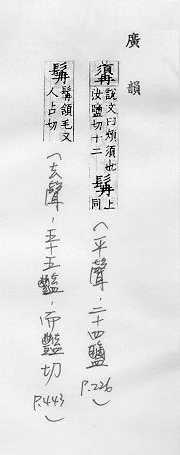 廣韻
䫇說文曰頰須也汝鹽切十二髥上同
(平聲,二十四鹽 P.226)
髥髥頷毛又人占切
(去聲,五十五豔,而豔切 P.443)